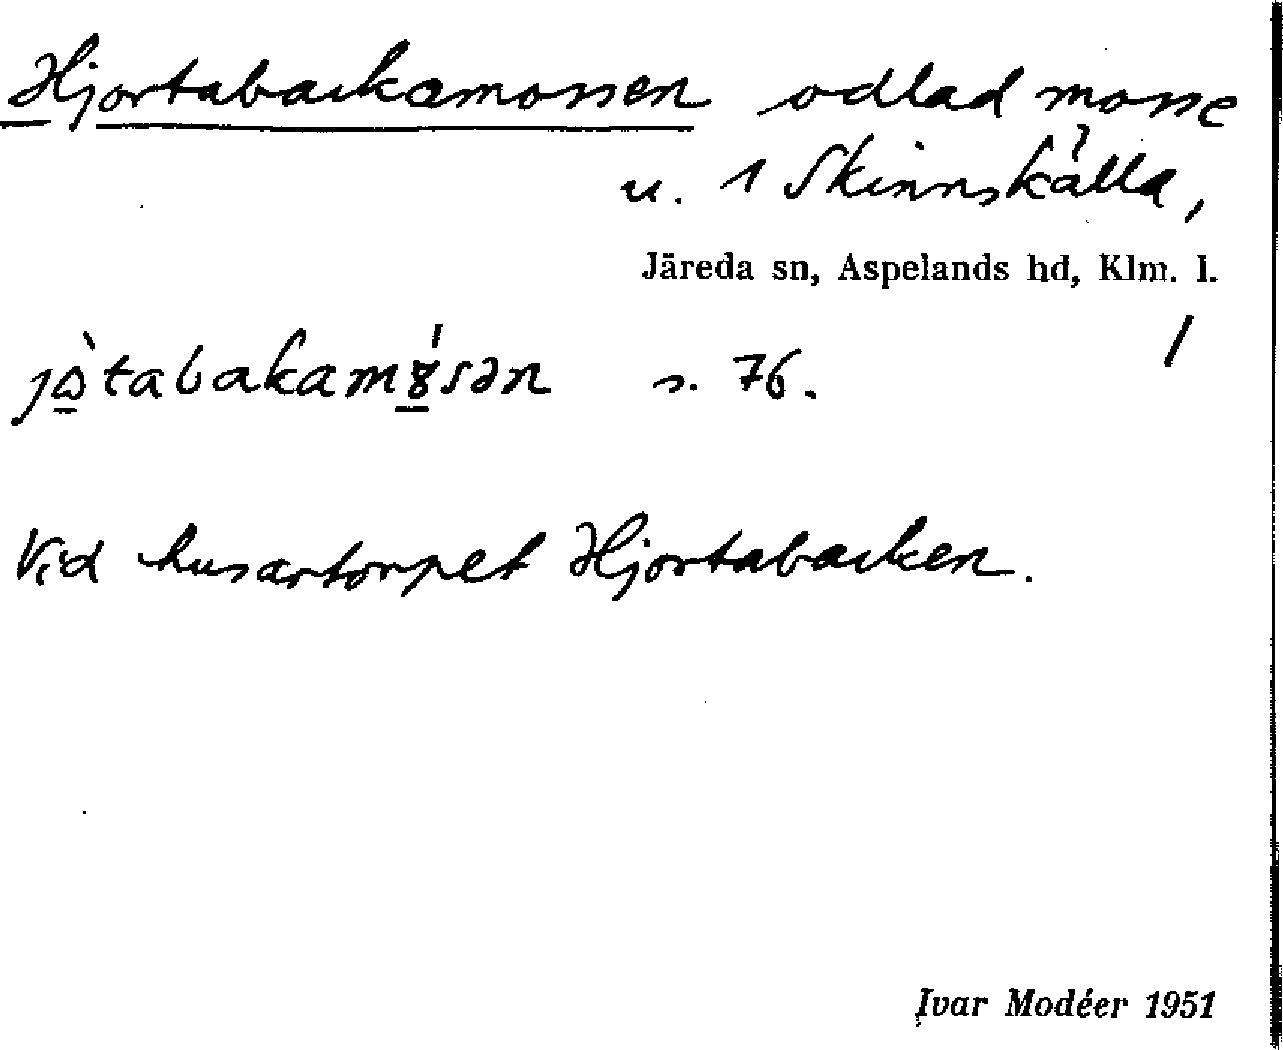 Hjortabackamossen odlad mosse
u. 1 Skinnskälla,
Järeda sn, Aspelands hd, Klm. l.
s. 76.
Vid husartorpet Hjortabacken.
Ivar Modéer 1951